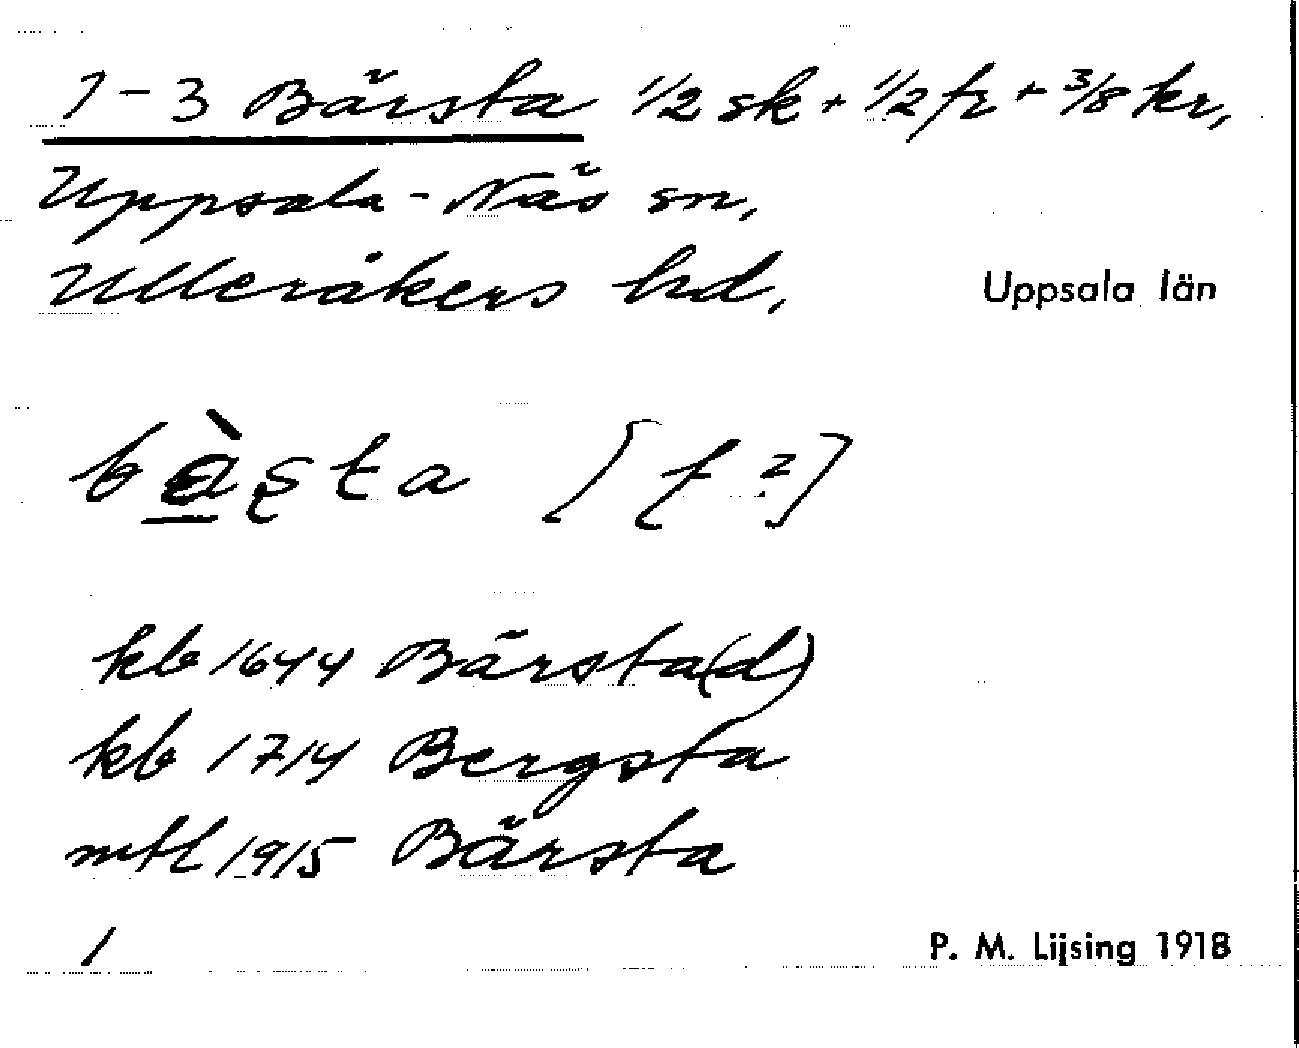 1-3 Bärsta 1/2 sk + 1/2 fr + 3/8 kr,
Uppsala-Näs sn,
Ulleråkers hd, Uppsala län
[ ? ]
kb 1644 Bärsta(d)
kb 1714 Bergsta
mtl 1915 Bärsta
1
P. M. Lijsing 1918